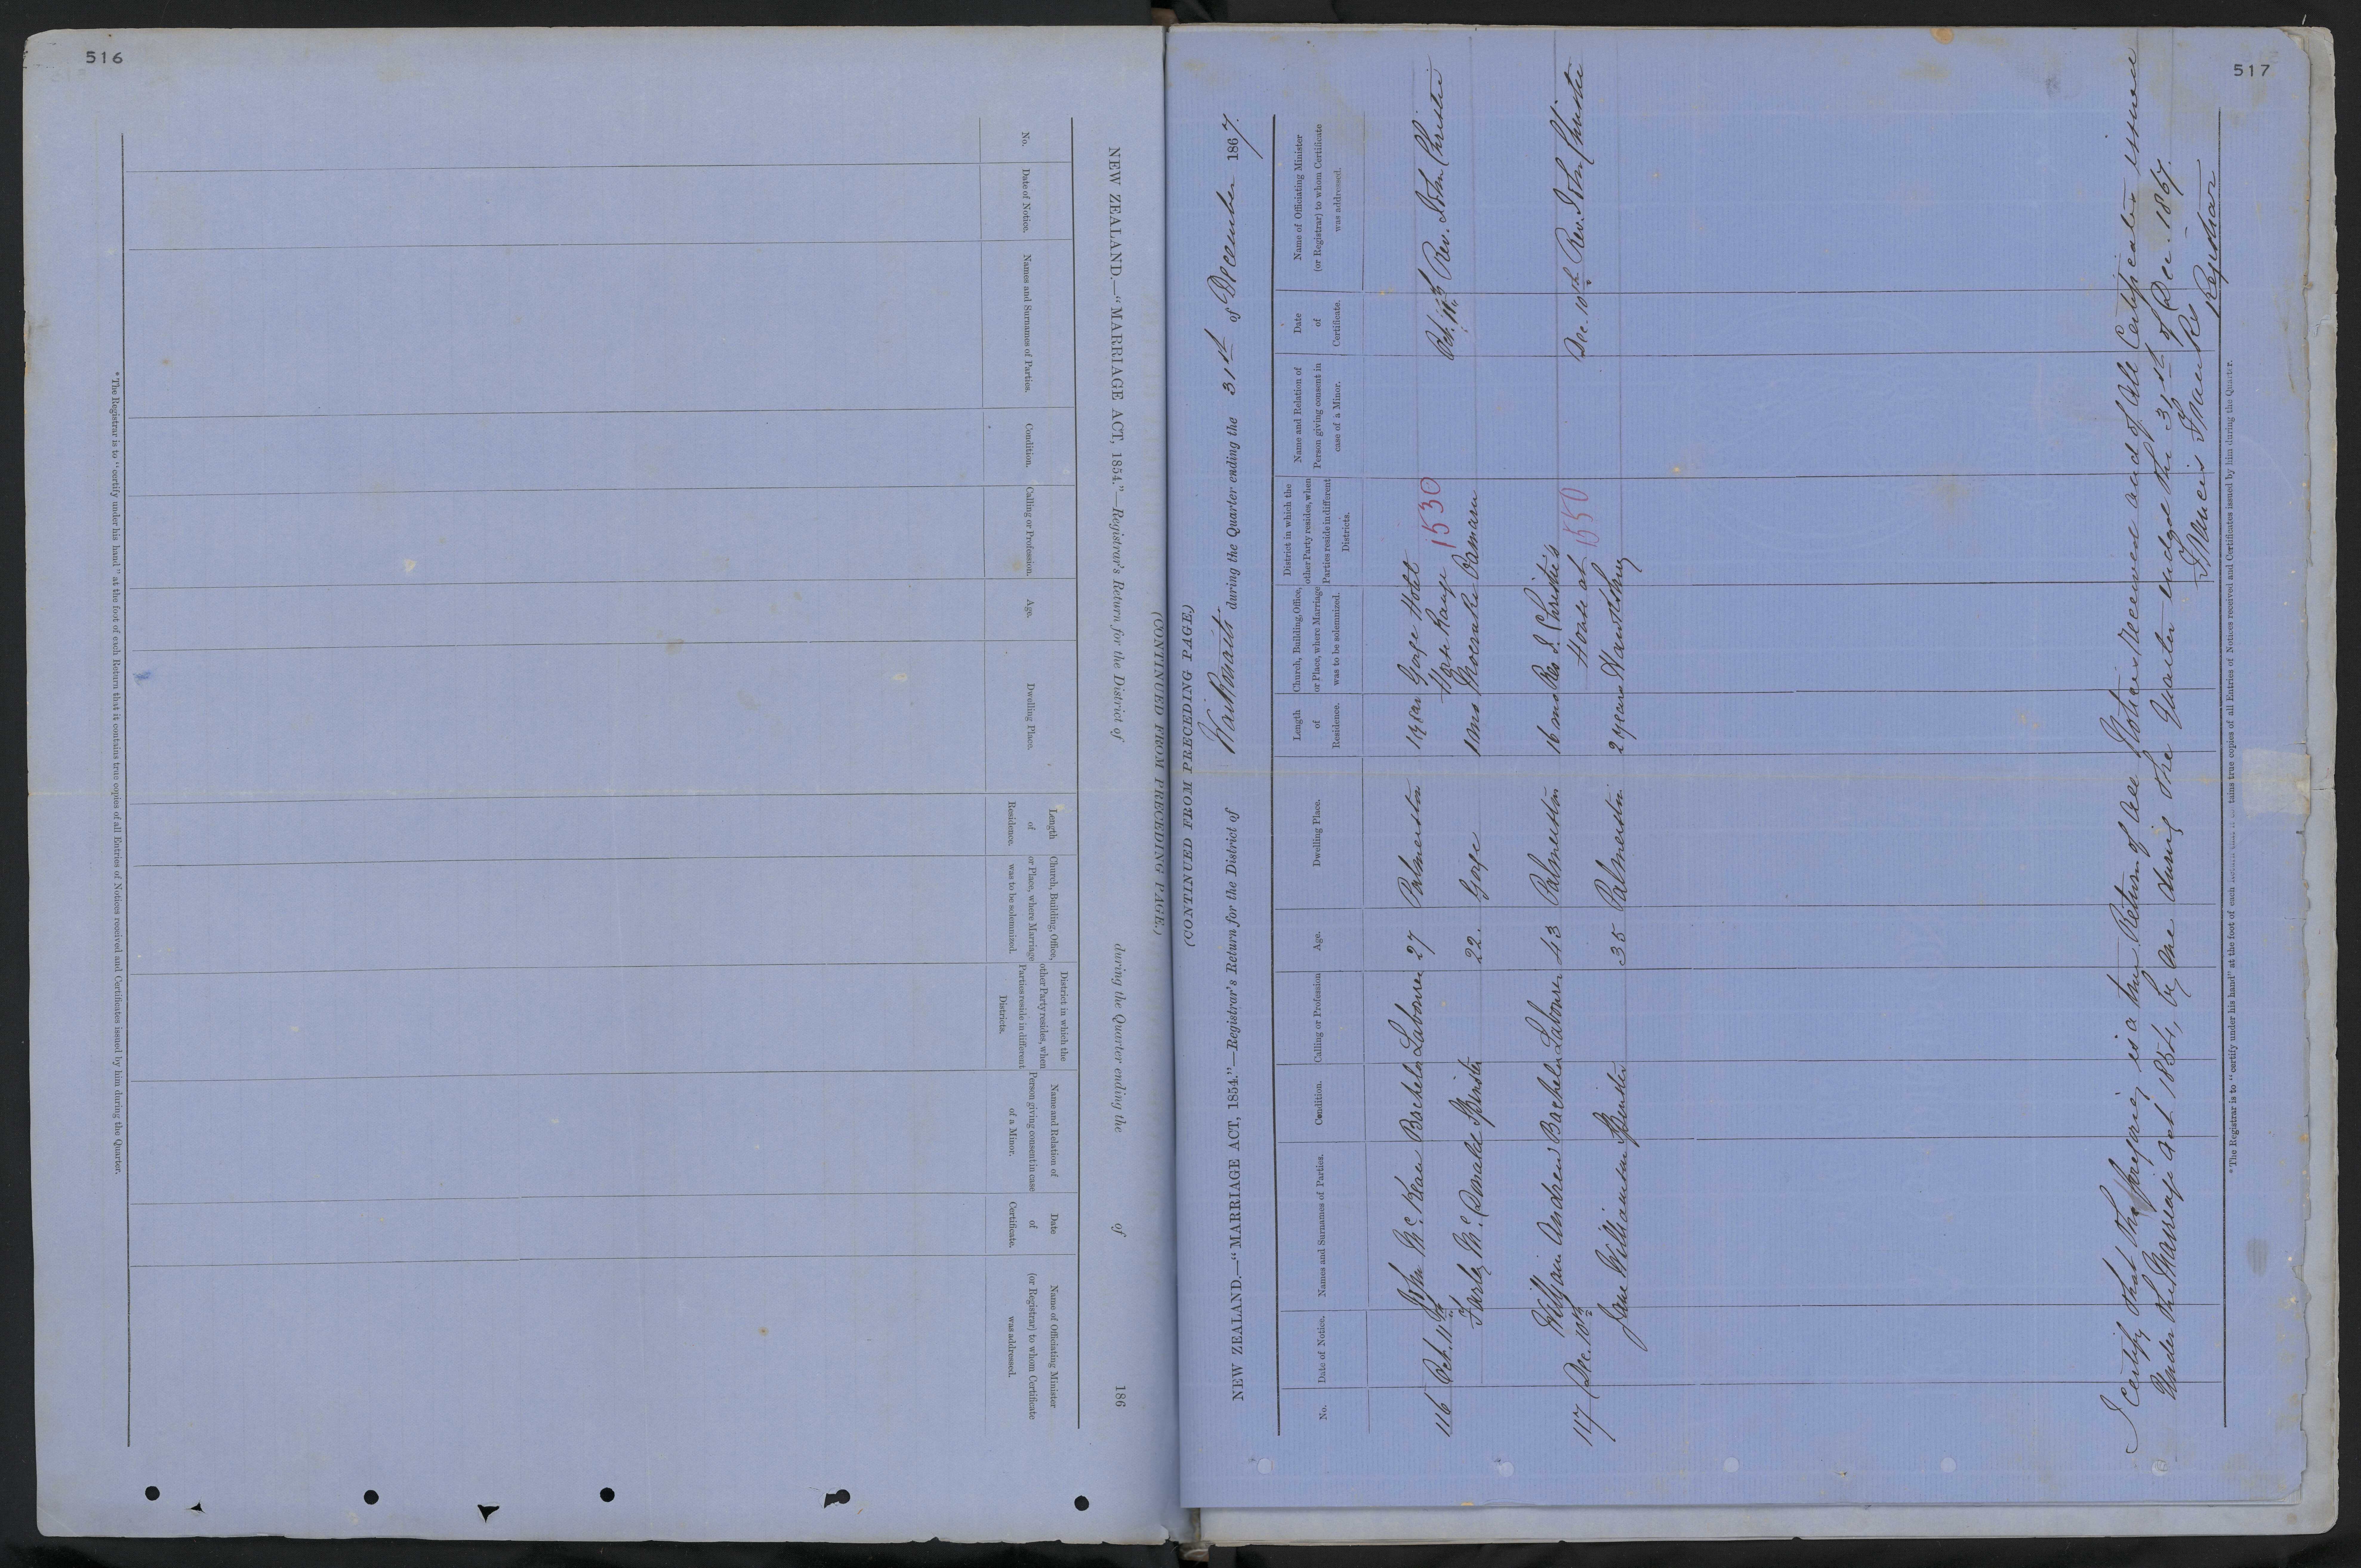 516
(CONTINUED FROM PRECEDING PAGE.)
NEW ZEALAND.—"MARRIAGE ACT, 1854."—Registrar's Return for the District of during the Quarter ending the of 186
No.
Date of Notice.
Names and Surnames of Parties.
Condition.
Calling or Profession.
Age.
Dwelling Place.
Length of Residence.
Church, Building, Office, or Place, where Marriage was to be solemnized.
District in which the other Party resides, when Parties reside in different Districts.
Name and Relation of Person giving consent in case of a Minor.
Date of Certificate.
Name of Officiating Minister (or Registrar) to whom Certificate was addressed.
* The Registrar is to "certify under his hand" at the foot of each Return that it contains true copies of all Entries of Notices received and Certificates issued by him during the Quarter.
517
(CONTINUED FROM PRECEDING PAGE.)
NEW ZEALAND.—"MARRIAGE ACT, 1854."—Registrar's Return for the District of Waikouaiti during the Quarter ending the 31st of December 1867.
No.
Date of Notice.
Names and Surnames of Parties.
Condition.
Calling or Profession
Age.
Dwelling Place.
Length of Residence.
Church, Building, Office, or Place, where Marriage was to be solemnized.
District in which the other Party resides, when Parties reside in different Districts.
Name and Relation of Person giving consent in case of a Minor.
Date of Certificate.
Name of Officiating Minister (or Registrar) to whom Certificate was addressed.
John McKean Bachelor Labourer 27 Palmerston 1 year Gorge Hotel
116 Oct. 11th Horse Range 1530 Oct. 11th Rev. John Christie
McDonald Spinster 22. Gorge 1 mo Moeraki Oamaru
William Andrew Bachelor Labourer 43 Palmerston 16 mos Rev J. Christie's
117 Dec. 10th House at 1550 Dec. 10th Rev. John Christie
Jane Williamson Spinster 35 Palmerston 2 years
I certify that the foregoing is a true Return of all Notices received and of all Certificates issued
Under the Marriage Act 1854, by me during the Quarter ended the 31st of Dec. 1867.
Francis
Registrar
* The Registrar is to "certify under his hand" at the foot of each Return that it contains true copies of all Entries of Notices received and Certificates issued by him during the Quarter.